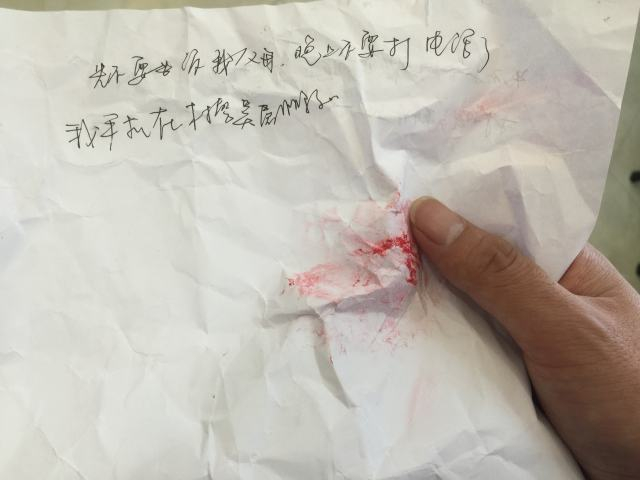 先不要告诉我父母.晚上不要打电话了
我手机在村